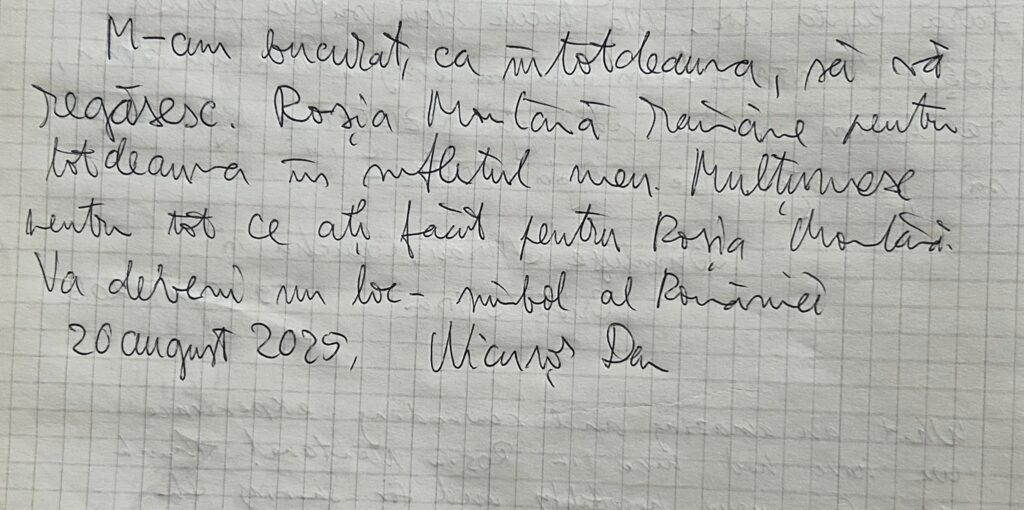 M-am bucurat, ca întotdeauna, să vă
regăsesc. Roșia Montană rămâne pentru
totdeauna în sufletul meu. Mulțumesc
pentru tot ce ați făcut pentru Roșia Montană.
Va deveni un loc-simbol al României
20 august 2025, Nicușor Dan